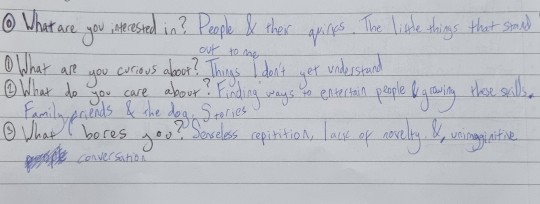 ⓪ What are you interested in? People & their quirks. The little things that stand
out to me
① What are you curious about? Things I don't yet understand
② What do you care about? Finding ways to entertain people & growing these skills.
Family, friends & the dog. Stories
③ What bores you? Senseless repitition, lack of novelty &, unimaginitive
conversation